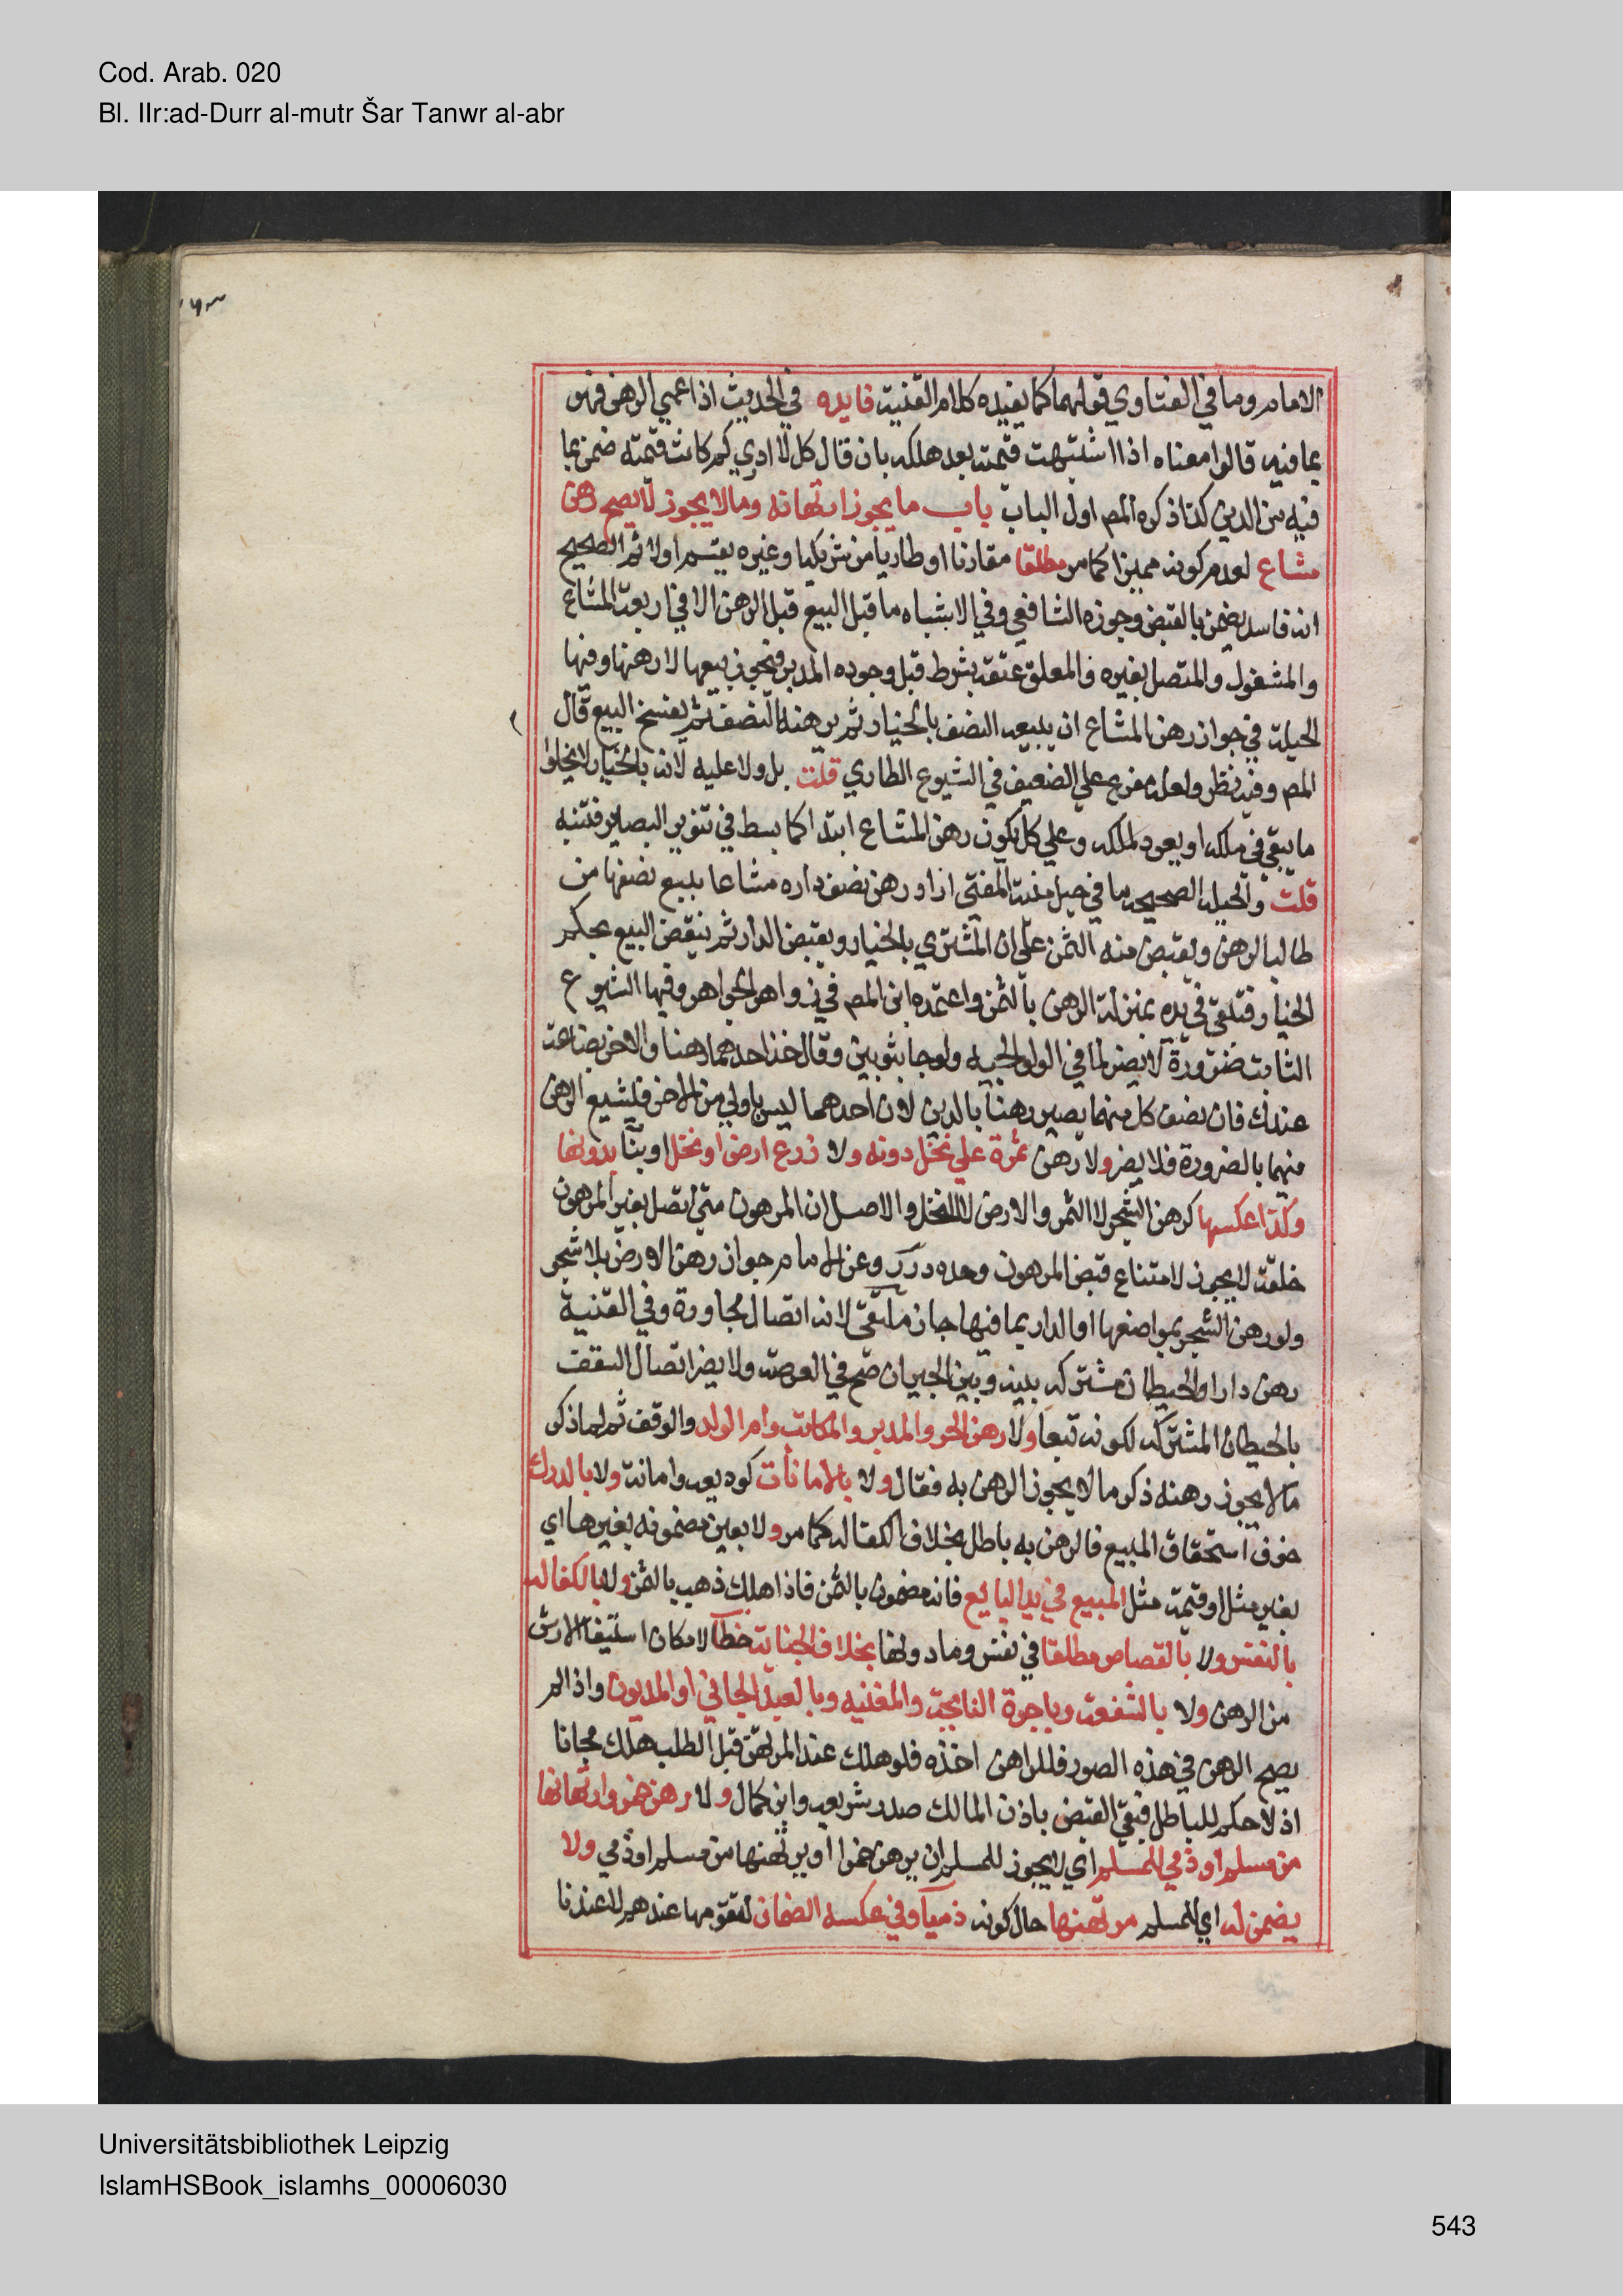 Cod. Arab. 020
Bl. IIr:ad-Durr al-mutr Šar Tanwr al-abr
الامام وما في الفتاوي قولهما كما يفيده كلام القنية فايده في الحديث اذا عمي الرهن فهو
بما فيه قالوا معناه اذا اشتبهت قيمته بعد هلكه بان قال كل لا ادري كم كانت قيمته ضمن بما
فيه من الدين كذا ذكره المص اول الباب باب ما يجوز ارتهانه وما لا يجوز لا يصح رهن
مشاع لعدم كونه مميزا كما مر مطلقا مقارنا او طاريا من شريكه او غيره يقسم اولا ثم الصحيح
انه فاسد يضمن بالقبض وجوزه الشافعي وفي الاشباه ما قبل البيع قبل الرهن الا في اربعة المشاع
والمشغول والمتصل بغيره والمعلق عتقه بشرط قبل وجوده المدبر فيجوز بيعها لا رهنها وفيها
الحيلة في جواز رهن المشاع ان يبيعه النصف بالخيار ثم يرهنه النصف ثم يفسخ البيع قال
المص وفيه نظر ولعله مفرع علي الضعيف في الشيوع الطاري قلت بل ولا عليه لانه بالخيار لا يخلوا
ما يبقي في ملكه او يعود لملكه وعلي كل يكون رهن المشاع ابتدا كما بسط في تنوير البصاير فتنبه
قلت والحيلة الصحيحة ما في حيل منية المفتي اراد رهن نصف داره مشاعا يبيع نصفها من
طالب الرهن ويقبض منه الثمن علي ان المشتري بالخيار ويقبض الدار ثم ينقض البيع بحكم
الخيار فتبقي في يده بمنزلة الرهن بالثمن واعتمده ابن المص في زواهر الجواهر وفيها الشيوع
الثابت ضرورة لا يضر لما في الولوالجيه ولو جا بثوبين وقال خذ احدهما رهنا والاخر بضاعة
عندك فان نصف كل منهما يصير رهنا بالدين لان احدهما ليس باولي من الاخر فيشيع الرهن
منهما بالضرورة فلا يضر ولا رهن ثمرة علي نخل دونه ولا زرع ارض او نخل او بنا بدونها
وكذا عكسها كرهن الشجر لا الثمر والارض لا النخل والاصل ان المرهون متي اتصل بغير المرهون
خلقة لا يجوز لامتناع قبض المرهون وحده درر وعن الامام جواز رهن الارض بلا شجر
ولو رهن الشجر بمواضعها او الدار بما فيها جاز ملتقي لانه اتصال مجاورة وفي القنية
رهن دارا والحيطان مشتركه بينه وبين الجيران صح في العرصة ولا يضر اتصال السقف
بالحيطان المشتركه لكونه تبعا ولا رهن الحر والمدبر والمكاتب وام الولد والوقف ثم لما ذكر
ما لا يجوز رهنه ذكر ما لا يجوز الرهن به فقال ولا بالامانات كوديعه وامانة ولا بالدرك
خوف استحقاق المبيع فالرهن به باطل بخلاف الكفاله كما مر ولا بعين مضمونه بغيرها اي
بغير مثل او قيمة مثل المبيع في يد البايع فانه مضمون بالثمن فاذا هلك ذهب بالثمن ولا بالكفالة
بالنفس ولا بالقصاص مطلقا في نفس وما دونها بخلاف الجناية خطا لامكان استيفا الارش
من الرهن ولا بالشفعة وباجرة النايحة والمغنيه وبالعبد الجاني او المديون واذا لم
يصح الرهن في هذه الصور فللراهن اخذه فلو هلك عند المرتهن قبل الطلب هلك مجانا
اذ لا حكم للباطل فبقي القبض باذن المالك صدر شريعه وابن كمال ولا رهن خمر وارتهانها
من مسلم او ذمي للمسلم اي لا يجوز للمسلم ان يرهن خمرا او يرتهنها من مسلم او ذمي ولا
يضمن له اي للمسلم مرتهنها حال كونه ذميا وفي عكسه الضمان لتقومها عندهم لا عندنا
Universitätsbibliothek Leipzig
IslamHSBook_islamhs_00006030
543